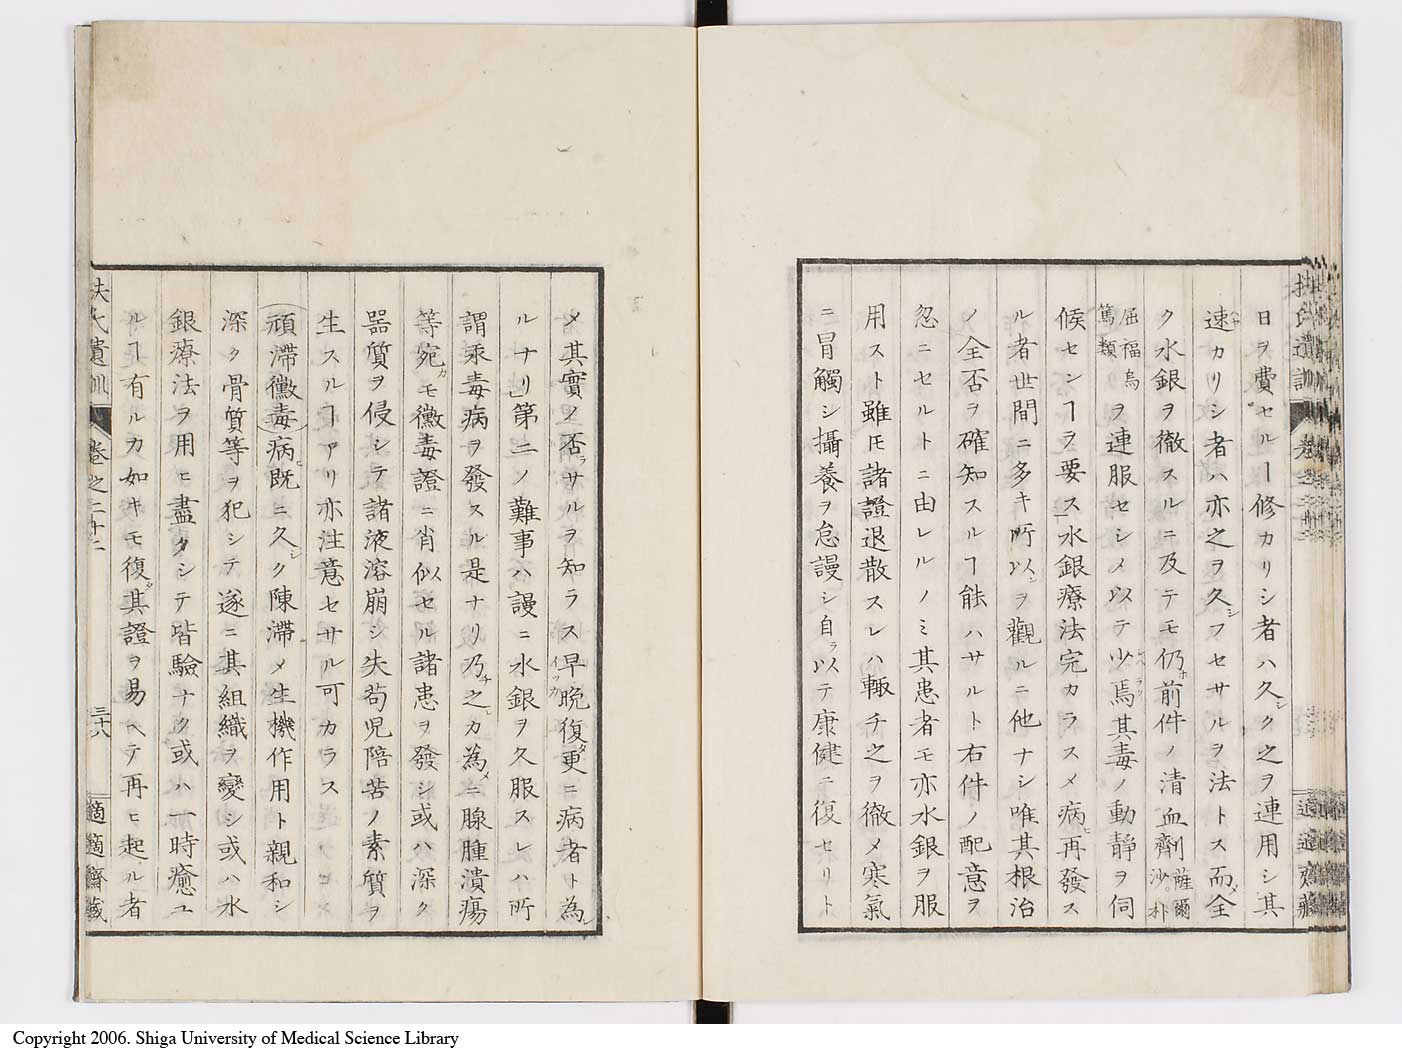 日ヲ費セルヿ修カリシ者ハ久シク之ヲ連用シ其
速カリシ者ハ亦之ヲ久フセサルヲ法トス而全
ク水銀ヲ徹スルニ及テモ仍前件ノ清血劑薩爾沙。朴
屈福烏篤類ヲ連服セシメ以テ少焉其毒ノ動靜ヲ伺
候センヿヲ要ス水銀療法完カラスメ病再發ス
ル者世間ニ多キ所以ヲ觀ルニ他ナシ唯其根治
ノ全否ヲ確知スルヿ能ハサルト右件ノ配意ヲ
忽ニセルトニ由レルノミ其患者モ亦水銀ヲ服
用スト雖𪜈諸證退散スレハ輙チ之ヲ徹メ寒氣
ニ冒觸シ攝養ヲ怠謾シ自ラ以テ康健ニ復セリト
メ其實ノ否ラサルヲ知ラス早晩復更ニ病者ト為
ルナリ」第二ノ難事ハ謾ニ水銀ヲ久服スレハ所
謂汞毒病ヲ發スル是ナリ乃チ之カ為メニ腺腫潰瘍
等宛モ黴毒證ニ肖似セル諸患ヲ發シ或ハ深ク
器質ヲ侵シテ諸液溶崩シ失苟児陪苦ノ素質ヲ
生スルヿアリ亦注意セサル可カラス
頑滞黴毒病既ニ久シク陳滞メ生機作用ト親和シ
深ク骨質等ヲ犯シテ遂ニ其組織ヲ變シ或ハ水
銀療法ヲ用ヒ盡クシテ皆驗ナク或ハ一時癒ユ
ルヿ有ルカ如キモ復タ其證ヲ易ヘテ再ヒ起ル者
扶氏遺訓 卷之二十二 三十八 適適齋藏
Copyright 2006. Shiga University of Medical Science Library